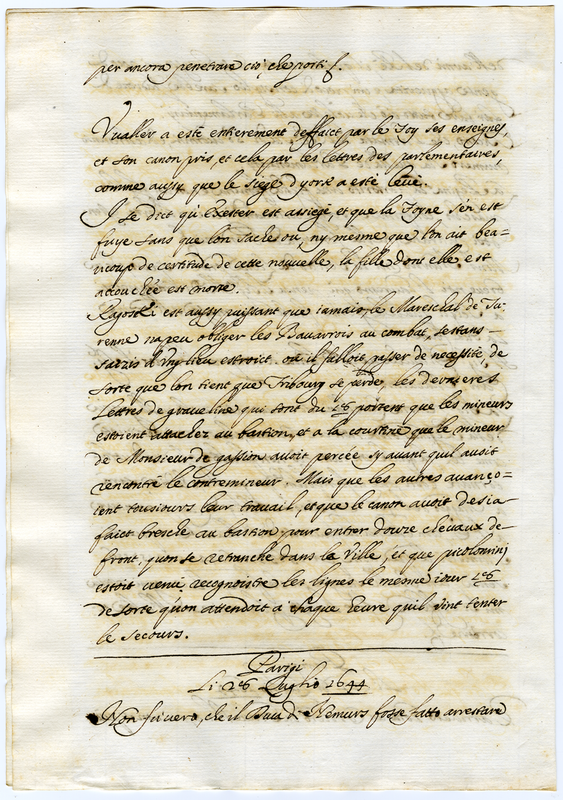 per ancora penetrare ciò, che porti ſ.
Vualler a esté entierement deffaict par le Roy ses enseignes,
et son canon pris, et cela par les lettres des parlementaires,
comme aussy que le siege d'york a esté levé.
Il se dict qu'Exester est assiegé, et que la Royne s'en est
fuye sans que l'on sache ou, ny mesme que l'on ait beau=
coup de certitude de cette nouvelle, la fille dont elle est
accouchée est morte.
Ragotski est aussy puissant que iamais, le Mareschal de Tu-
renne na peu obliger les Bauarrois au combat, sestans
saizis d'vn lieu estroict, où il falloit passer de necessité, de
sorte que lon tient que Fribourg se perde, les dernieres
lettres de graueline qui sont du 16 portent que les mineurs
estoient attachez au bastion, et a la courtine que le mineur
de Monsieur de gassion auoit percée sy auant quil auoit
rencontré le contremineur. Mais que les autres auanço-
ient tousiours leur trauail, et que le canon auoit desia
faict bresche au bastion, pour entrer douze cheuaux de
front, quon se retranche dans la Ville, et que picolomini
estoit venu recognoistre les lignes le mesme iour 16
de sorte qu'on attendoit a chaque heure quil vint tenter
le secours.
Parigi
Li 26 Luglio 1644
Non fu vero, che il Duca di Nemurs fosse fatto arrestare